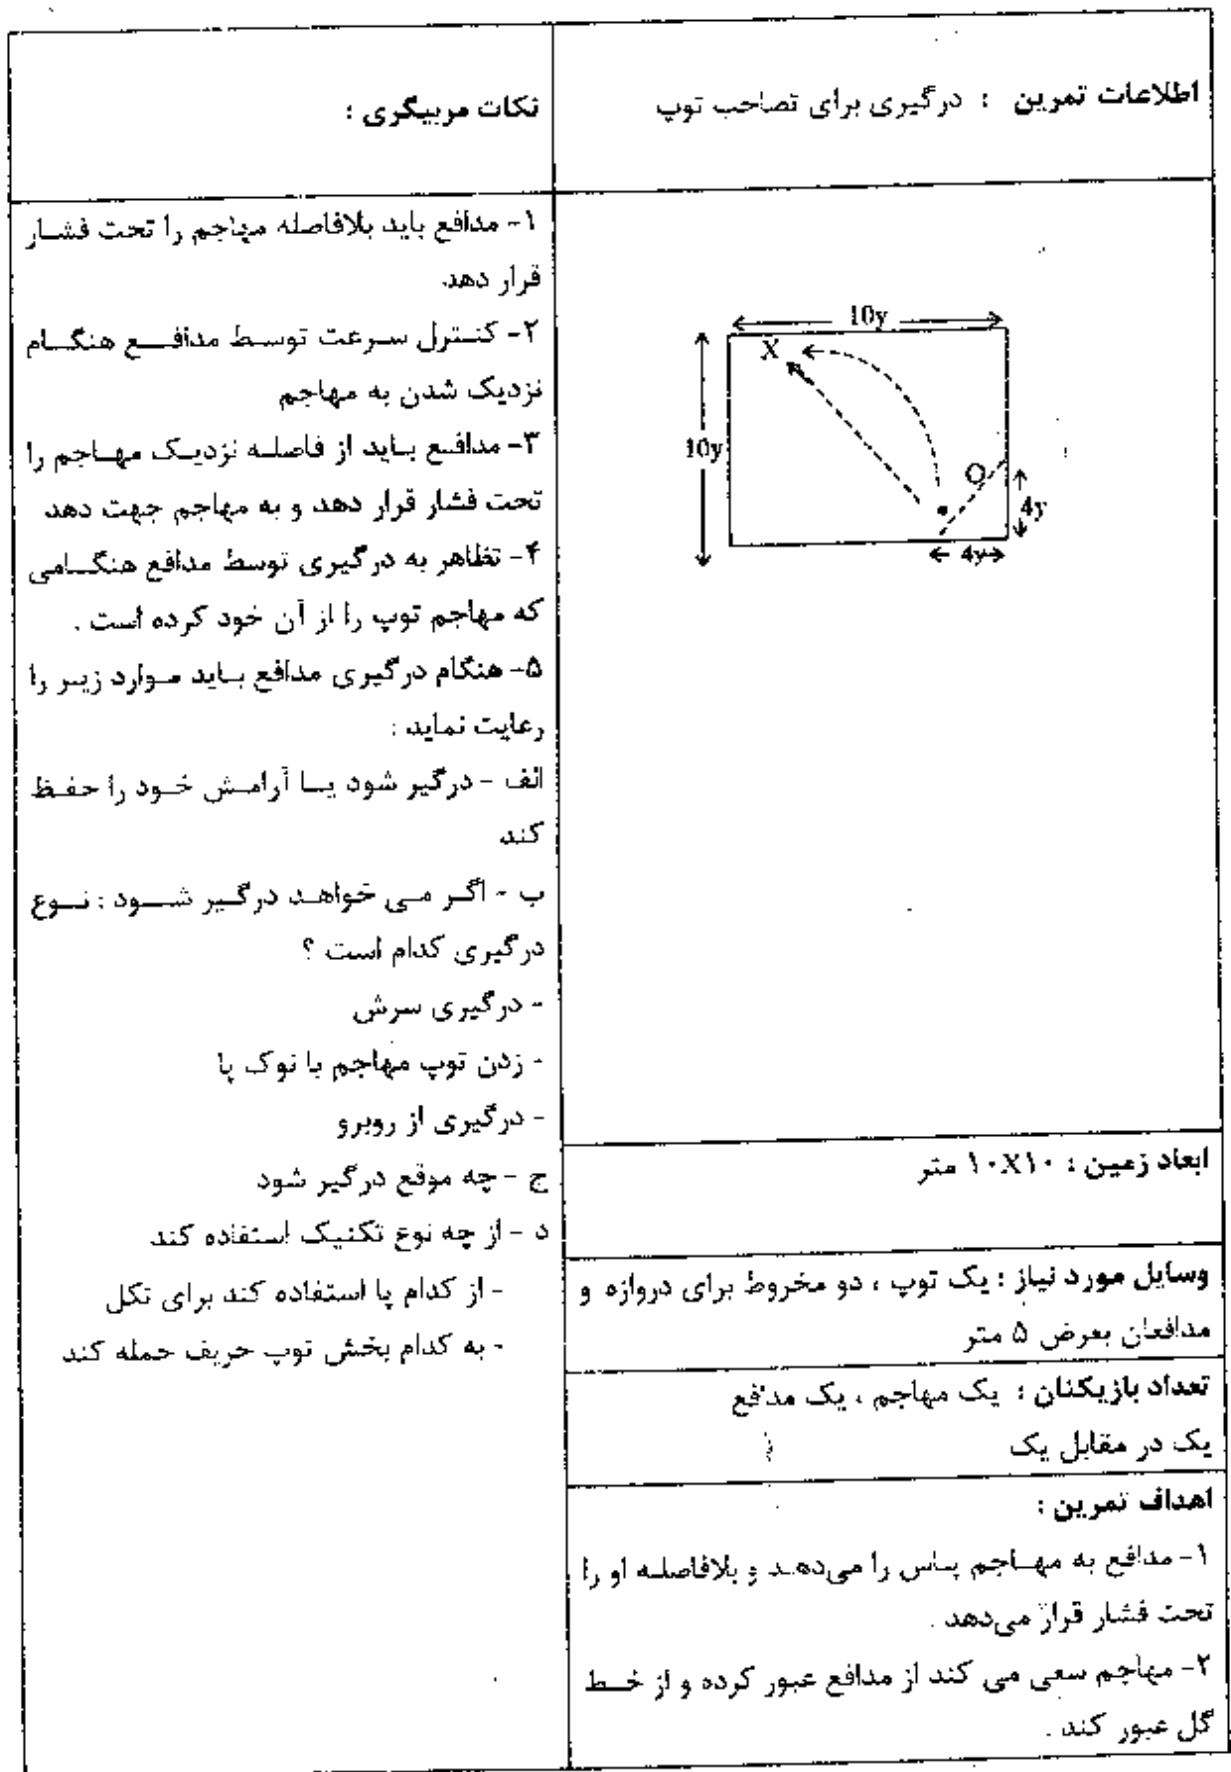 اطلاعات تمرین : درگیری برای تصاحب توپ
10y
X
10y
O
4y
4y
ابعاد زمین : ۱۰X۱۰ متر
وسایل مورد نیاز : یک توپ ، دو مخروط برای دروازه و
مدافعان بعرض ۵ متر
تعداد بازیکنان : یک مهاجم ، یک مدافع
یک در مقابل یک
اهداف تمرین :
۱- مدافع به مهاجم پاس را می‌دهد و بلافاصله او را
تحت فشار قرار می‌دهد .
۲- مهاجم سعی می کند از مدافع عبور کرده و از خط
گل عبور کند .
نکات مربیگری :
۱- مدافع باید بلافاصله مهاجم را تحت فشار
قرار دهد.
۲- کنترل سرعت توسط مدافع هنگام
نزدیک شدن به مهاجم
۳- مدافع باید از فاصله نزدیک مهاجم را
تحت فشار قرار دهد و به مهاجم جهت دهد
۴- تظاهر به درگیری توسط مدافع هنگامی
که مهاجم توپ را از آن خود کرده است .
۵- هنگام درگیری مدافع باید موارد زیر را
رعایت نماید :
الف - درگیر شود یا آرامش خود را حفظ
کند
ب - اگر می خواهد درگیر شود : نوع
درگیری کدام است ؟
- درگیری سرش
- زدن توپ مهاجم با نوک پا
- درگیری از روبرو
ج - چه موقع درگیر شود
د - از چه نوع تکنیک استفاده کند
- از کدام پا استفاده کند برای تکل
- به کدام بخش توپ حریف حمله کند